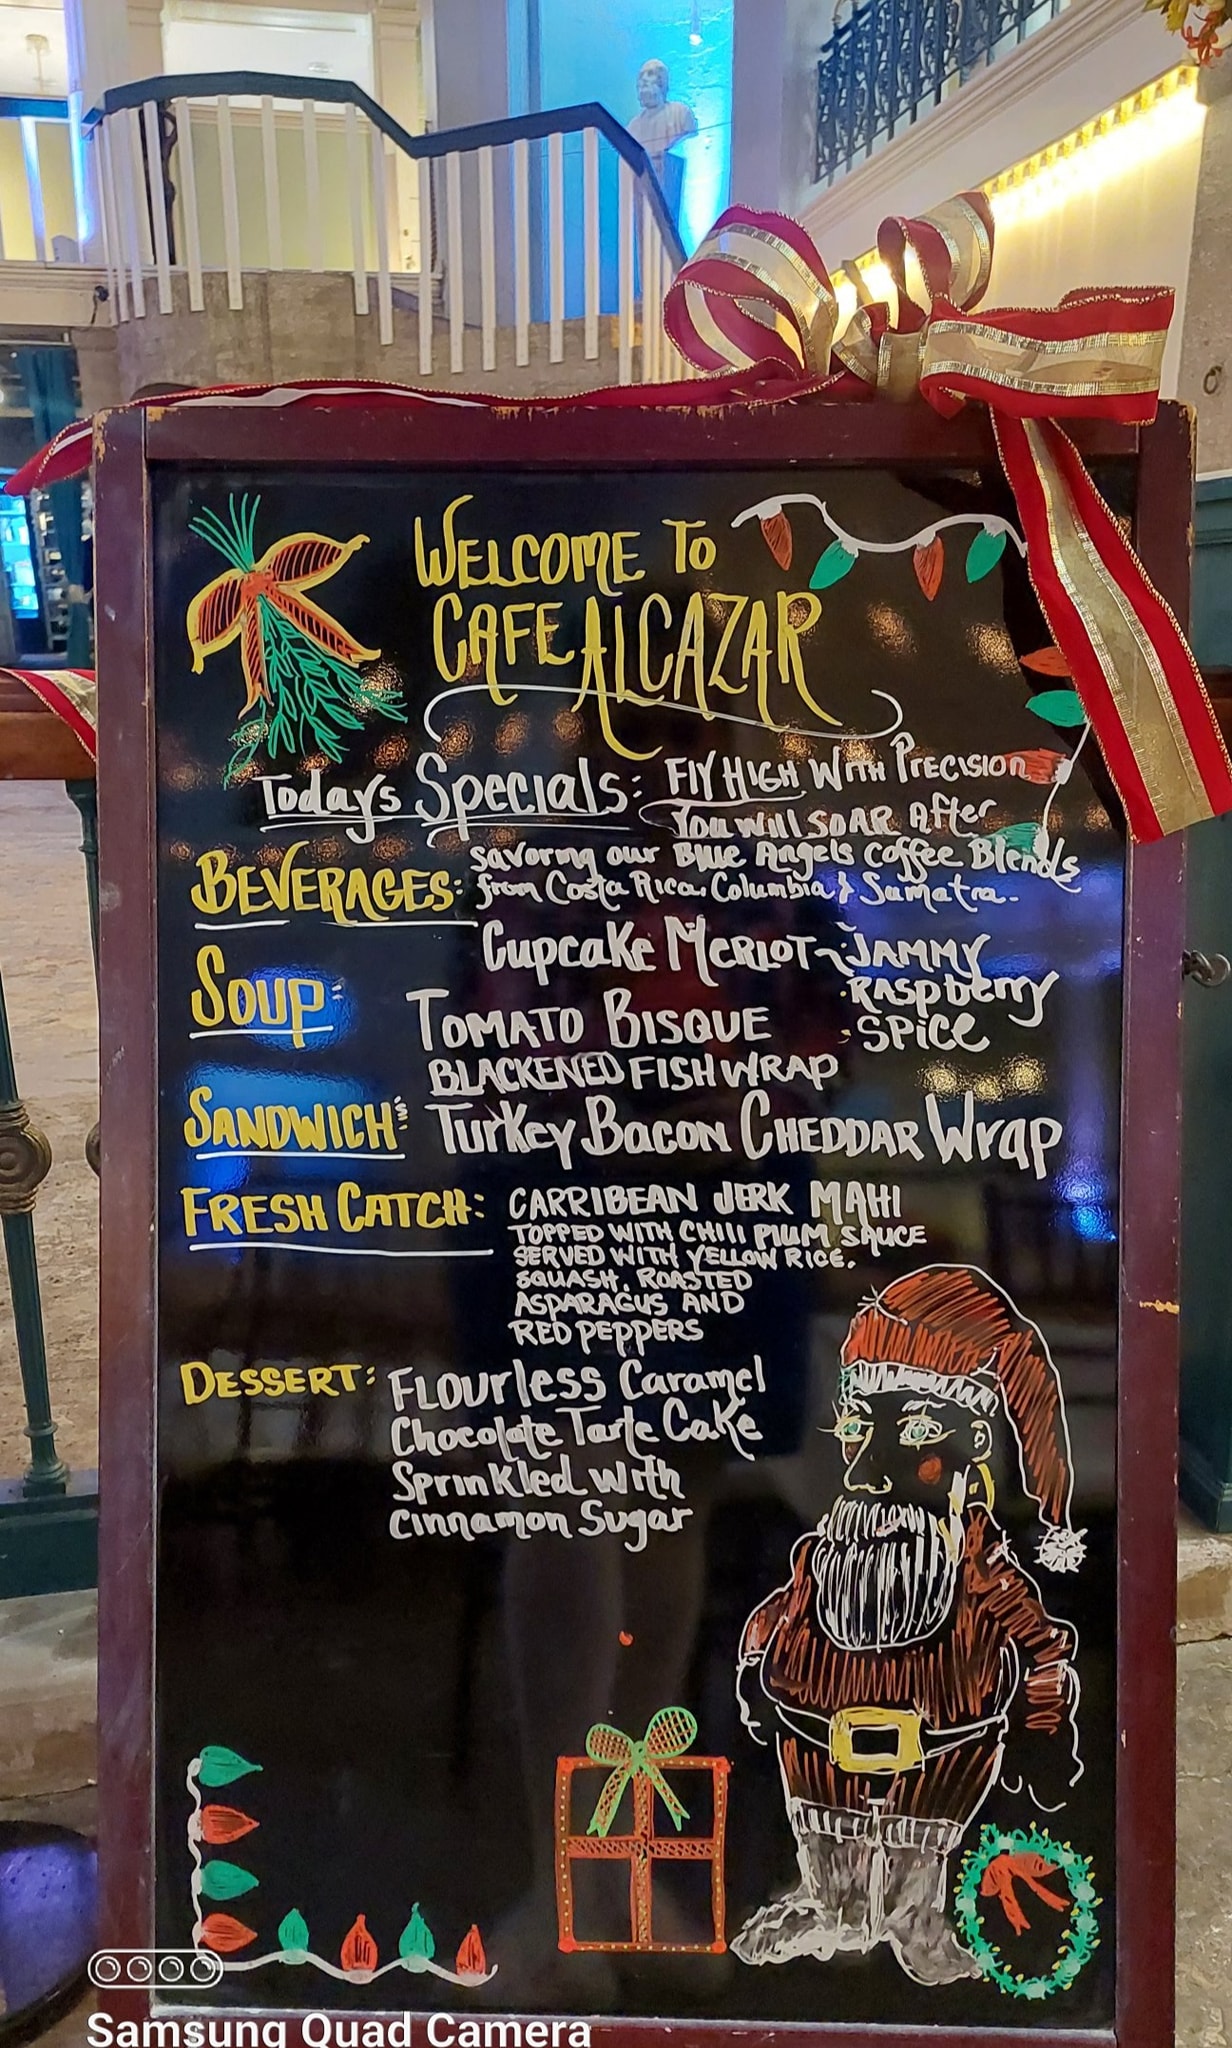 WELCOME TO
CAFE ALCAZAR
Todays Specials: FlY HIGH WITH PRECISION
You Will SOAR After
BEVERAGES: savoring our Blue Angels Coffee Blends
from Costa Rica, Columbia & Sumatra.
Cupcake MERLOT ~ JAMMY
Raspberry
SPICE
SOUP: TOMATO BISQUE
BLACKENED FISH WRAP
SANDWICH: Turkey BACON CHEDDAR Wrap
FRESH CATCH: CARRIBEAN JERK MAHI
TOPPED WITH CHIlI PlUM SAUCE
SERVED WITH YELLOW RICE.
SQUASH, ROASTED
ASPARAGUS AND
RED PEPPERS
DESSERT: FLOUrless Caramel
Chocolate Tarte Cake
Sprinkled with
Cinnamon Sugar
Samsung Quad Camera